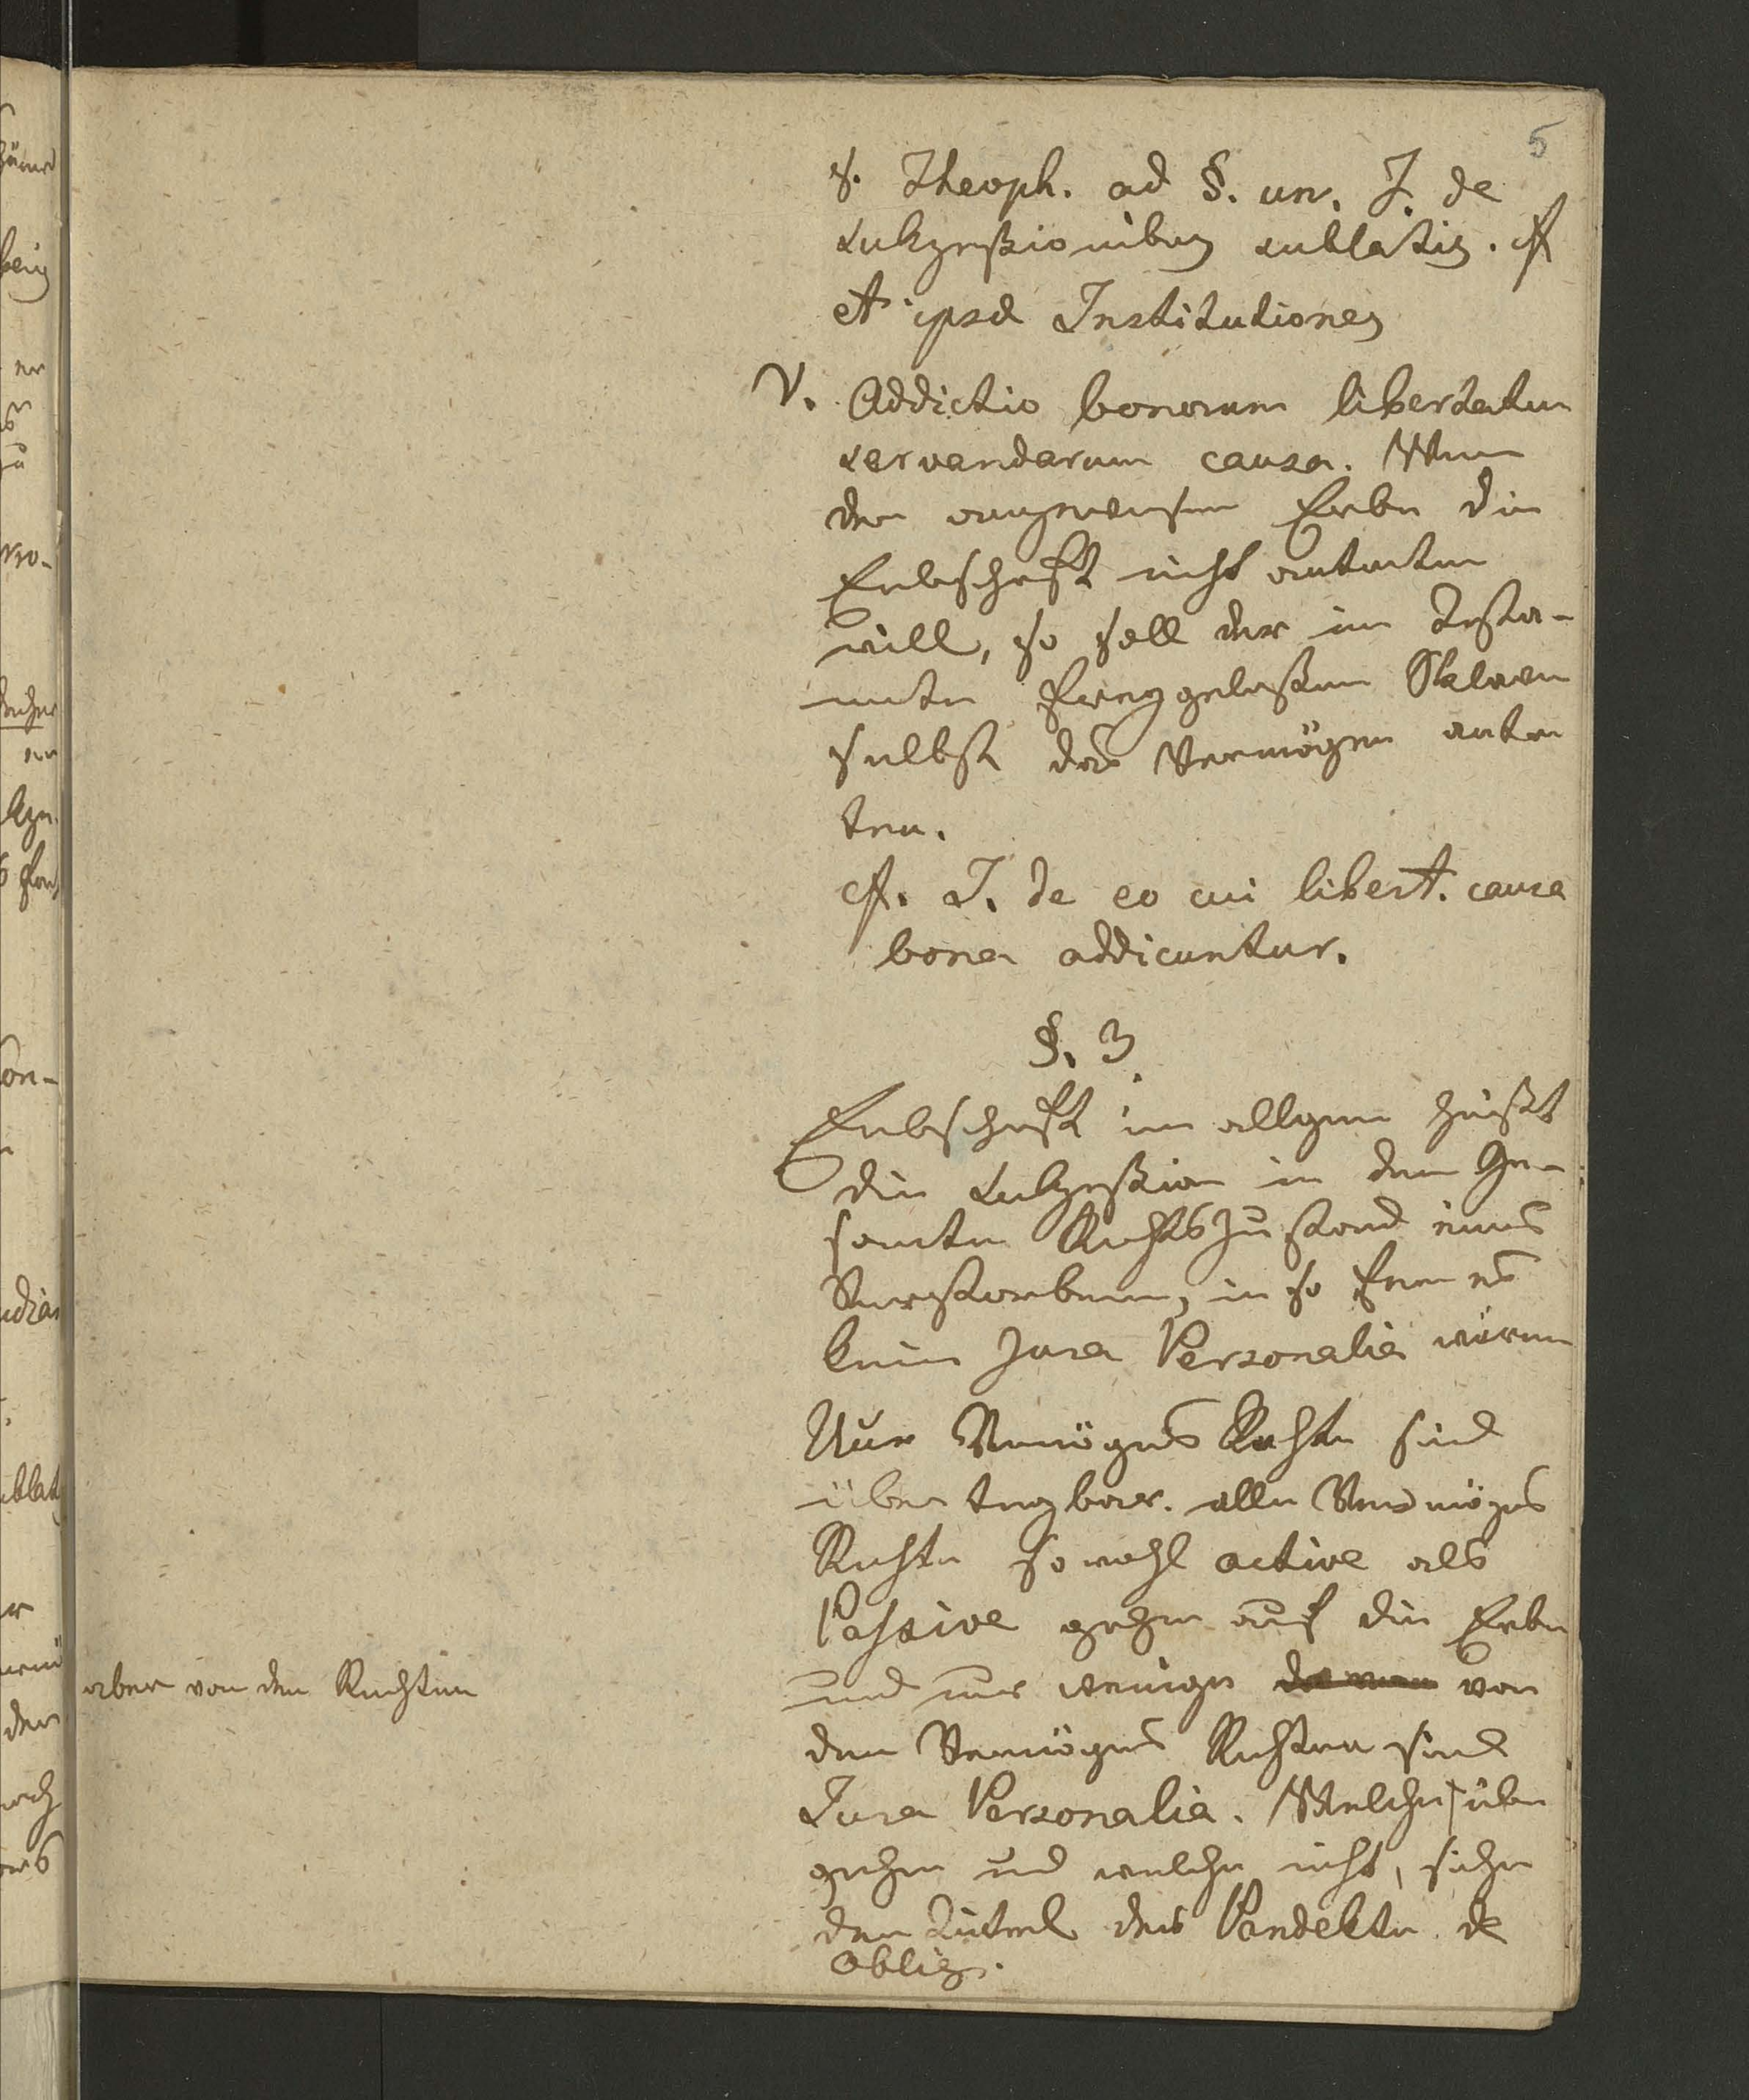 5
S. Theoph. ad §. un. I. de
sukzeßionibus sublatis. cf
et ipsæ Institutiones
V. Addictio bonorum libertatum
servandarum causa. Wenn
der Erbe die
Erbschaft nicht antreten
will, so soll der im Testa-
mente freygelaßene Sklaven
selbst das Vermögen antre
ten.
cf. I. de eo cui libert. causa
bona addicuntur.
§. 3
Erbschaft im allgem heißt
die Sukzeßion in den Ge-
samten Rechtszustand eines
Verstorbenen, in so fern es
keine Jura Personalia wären
Nur Vermögens Rechte sind
übertragbar. alle Vermögens
Rechte sowohl active als
Passive gehen auf die Erben
und nur wenige von
den Vermögens Rechten sind
Jura Personalia. Welche über
gehen und welche nicht, siehe
den Titel des Pandekten de
Oblig.
aber von den Rechten